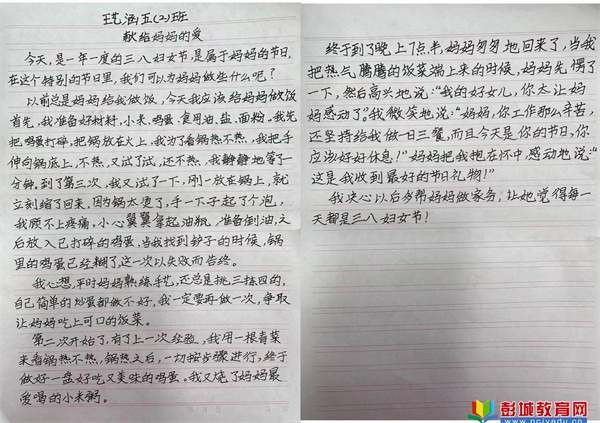 王艺涵五(2)班
献给妈妈的爱
今天,是一年一度的三八妇女节,是属于妈妈的节日,
在这个特别的节日里,我们可以为妈妈做些什么呢?
以前总是妈妈给我做饭,今天我应该给妈妈做饭
首先,我准备好材料,小米、鸡蛋、食用油、盐、面粉,我先
把鸡蛋打碎,把锅放在火上,我为了看锅热不热,我把手
伸向锅底上,不热,又试了试,还不热,我静静地等了一
分钟。到了第三次,我又试了一下,刚一放在锅上,就
立刻缩了回来,因为锅太烫了,手一下子起了个泡,
我顾不上疼痛,小心翼翼拿起油瓶,准备倒油,之
后放入已打碎的鸡蛋,当我找到铲子的时候,锅
里的鸡蛋已经糊了,这一次以失败而告终。
我心想,平时妈妈熟练手艺,还总是挑三拣四的,
自己简单的炒蛋都做不好,我一定要再做一次,争取
让妈妈吃上可口的饭菜。
第二次开始了,有了上一次经验,我用一根青菜
来看锅热不热,锅热之后,一切按步骤进行,终于
做好一盘好吃又美味的鸡蛋。我又烧了妈妈最
爱喝的小米粥。
终于到了晚上7点半,妈妈匆匆地回来了,当我
把热气腾腾的饭菜端上来的时候,妈妈先愣了
一下,然后高兴地说:“我的好女儿,你太让妈
妈感动了”我微笑地说:“妈妈,你工作那么辛苦,
还坚持给我做一日三餐,而且今天是你的节日,你
应该好好休息!”妈妈把我抱在怀中,感动地说:“
这是我收到最好的节日礼物!”
我决心以后多帮妈妈做家务,让她觉得每一
天都是三八妇女节!
彭城教育网
www.pcjyedu.cn